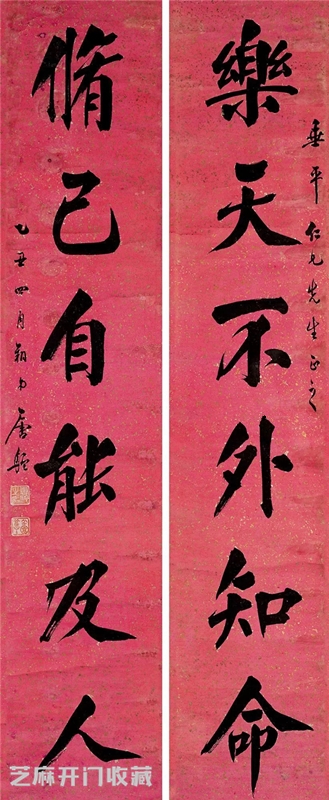 樂天不外知命
垂平仁兄先生正之
脩己自能及人
乙丑四月唐駝
芝麻开门收藏